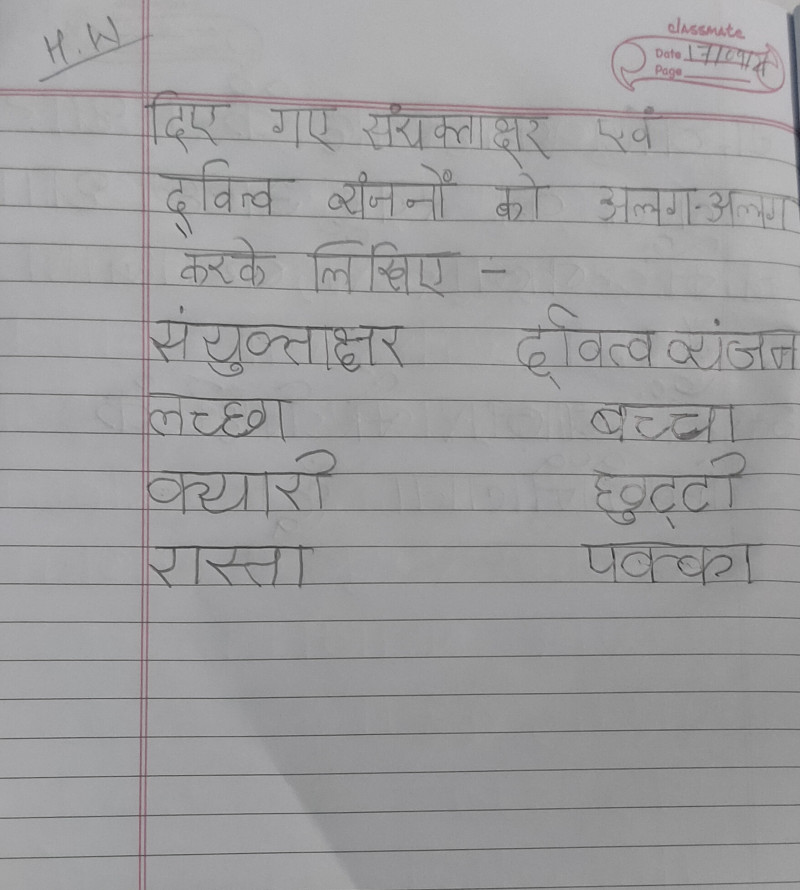 H.W
classmate
Date 17/09/24
Page
दिए गए संयक्ताक्षर एवं
द्वित्व व्यंजनों को अलग-अलग
करके लिखिए -
संयुक्ताक्षर द्वित्व व्यंजन
लच्छा बच्चा
क्यारी छुट्टी
रास्ता पक्का